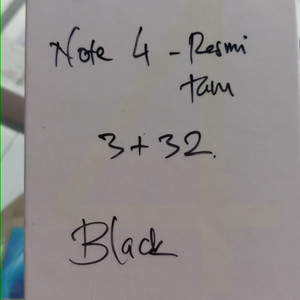 Note 4 - Resmi
tam
3+32.
Black